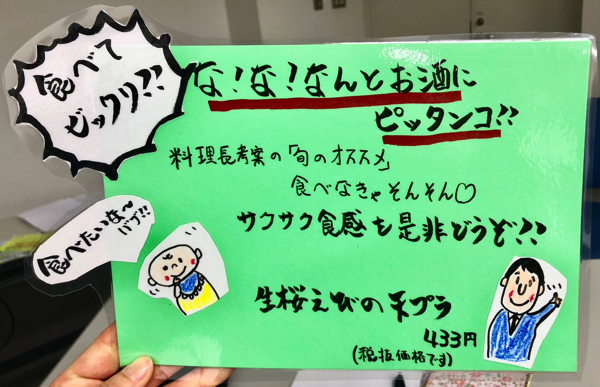 食べて
ビックリ!?
な!な!なんとお酒に
ピッタンコ!!
料理長考案の「旬のオススメ」
食べなきゃそんそん♡
サクサク食感を是非どうぞ!!
食べたいな〜
バブ!!
生桜えびの天プラ
433円
(税抜価格です)